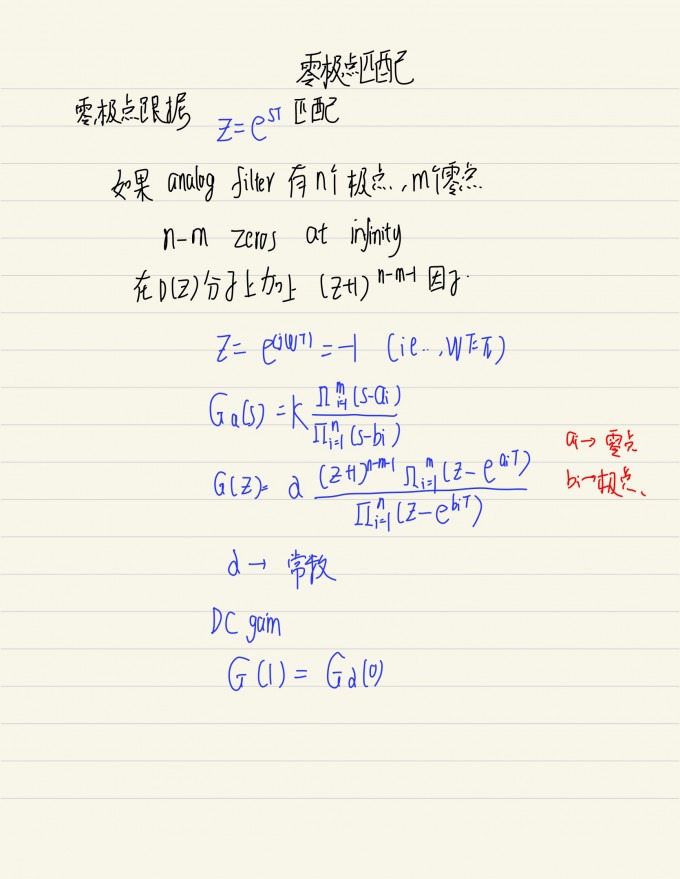 零极点匹配
零极点跟据 Z=e^{ST} 匹配
如果 analog filter 有n个极点,m个零点
n-m zeros at infinity
在D(Z)分子上加上 (Z+1)^{n-m-1} 因子.
Z= e^{(jWT)} = -1 (ie..., WT=π)
Ga(s) = K \frac{∏_{i=1}^{m}(s-ai)}{∏_{i=1}^{n}(s-bi)}
G(Z)= α \frac{(Z+1)^{n-m-1} ∏_{i=1}^{m}(Z-e^{aiT})}{∏_{i=1}^{n}(Z-e^{biT})}
ai→零点
bi→极点、
α → 常数
DC gain
G(1) = Ga(0)